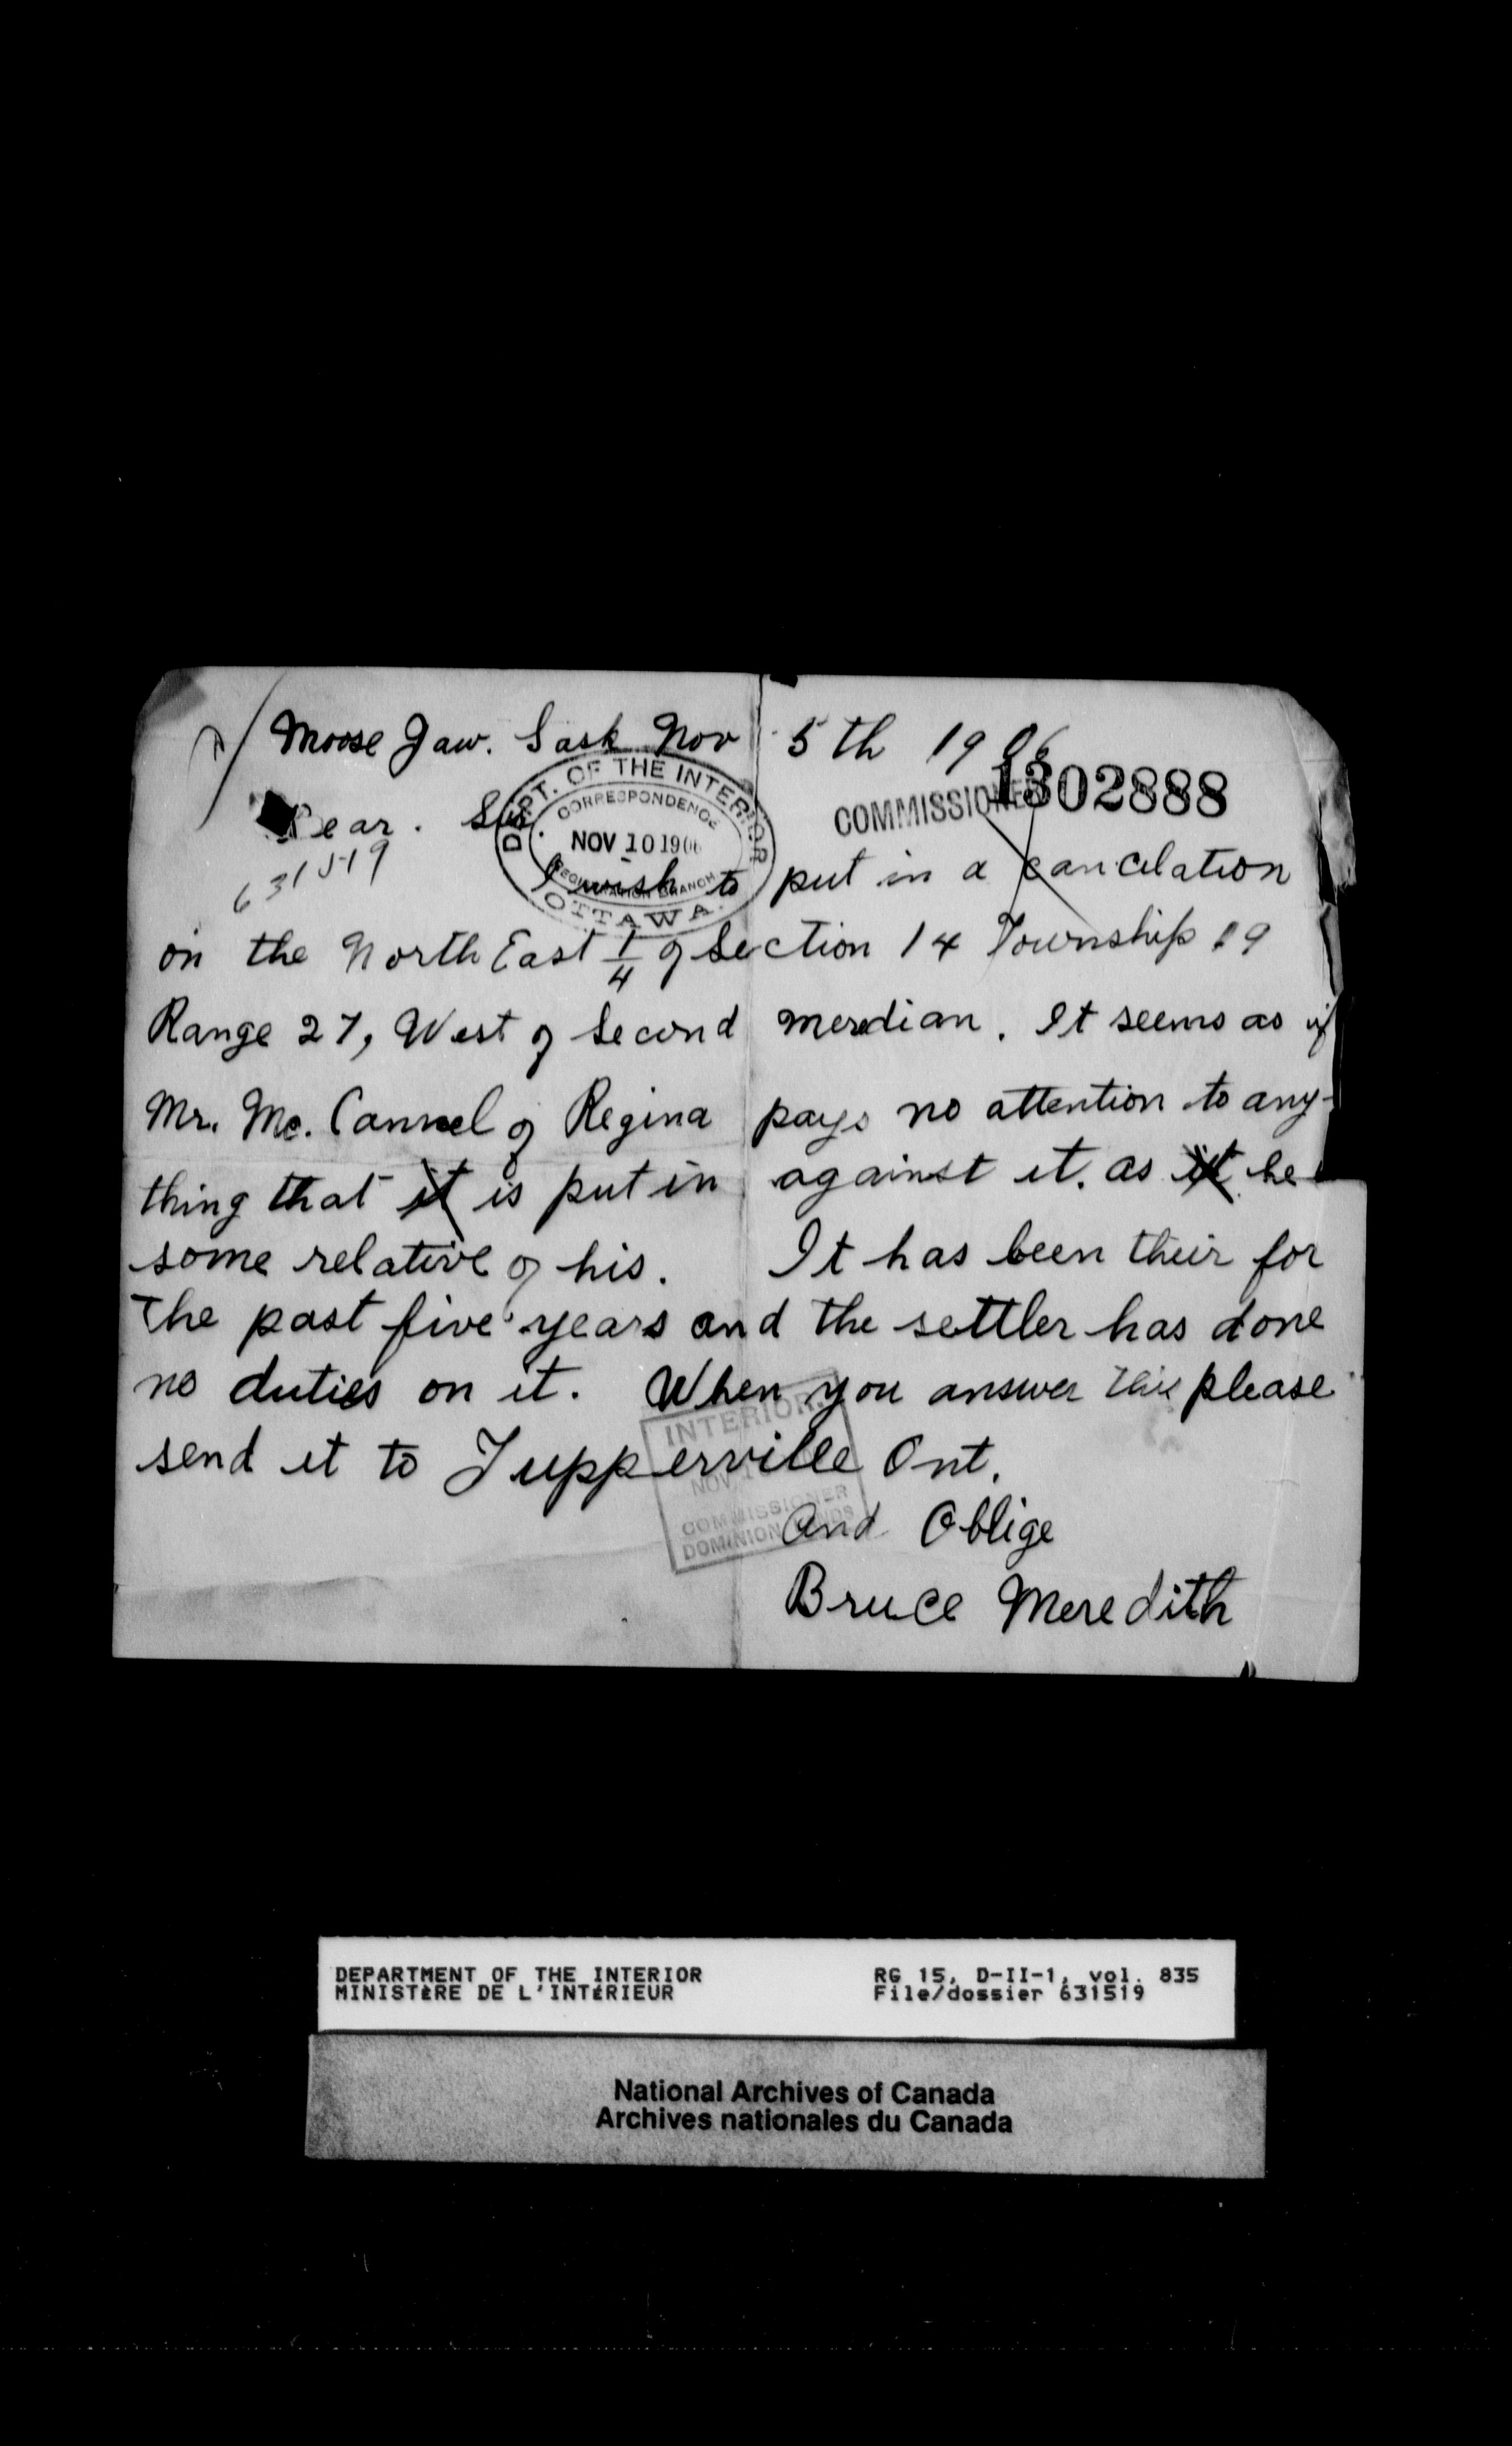 Moose Jaw. Sask Nov 5th 1906
1302888
COMMISSIONER
Dear. Sir
DEPT. OF THE INTERIOR
CORRESPONDENCE
NOV 10 1906
REGISTRATION BRANCH
OTTAWA.
631519
I wish to put in a cancelation
on the North East 1/4 of Section 14 Township 19
Range 27, West of Second meredian. It seems as if
Mr. Mc. Cannel of Regina pays no attention to any-
thing that it is put in against it. as it he
some relative of his. It has been their for
the past five years and the settler has done
no duties on it. When you answer this please
send it to Tupperville Ont.
INTERIOR
NOV
COMMISSIONER
DOMINION LANDS
And Oblige
Bruce Meredith
DEPARTMENT OF THE INTERIOR RG 15, D-II-1, vol. 835
MINISTÈRE DE L'INTÉRIEUR File/dossier 631519
National Archives of Canada
Archives nationales du Canada